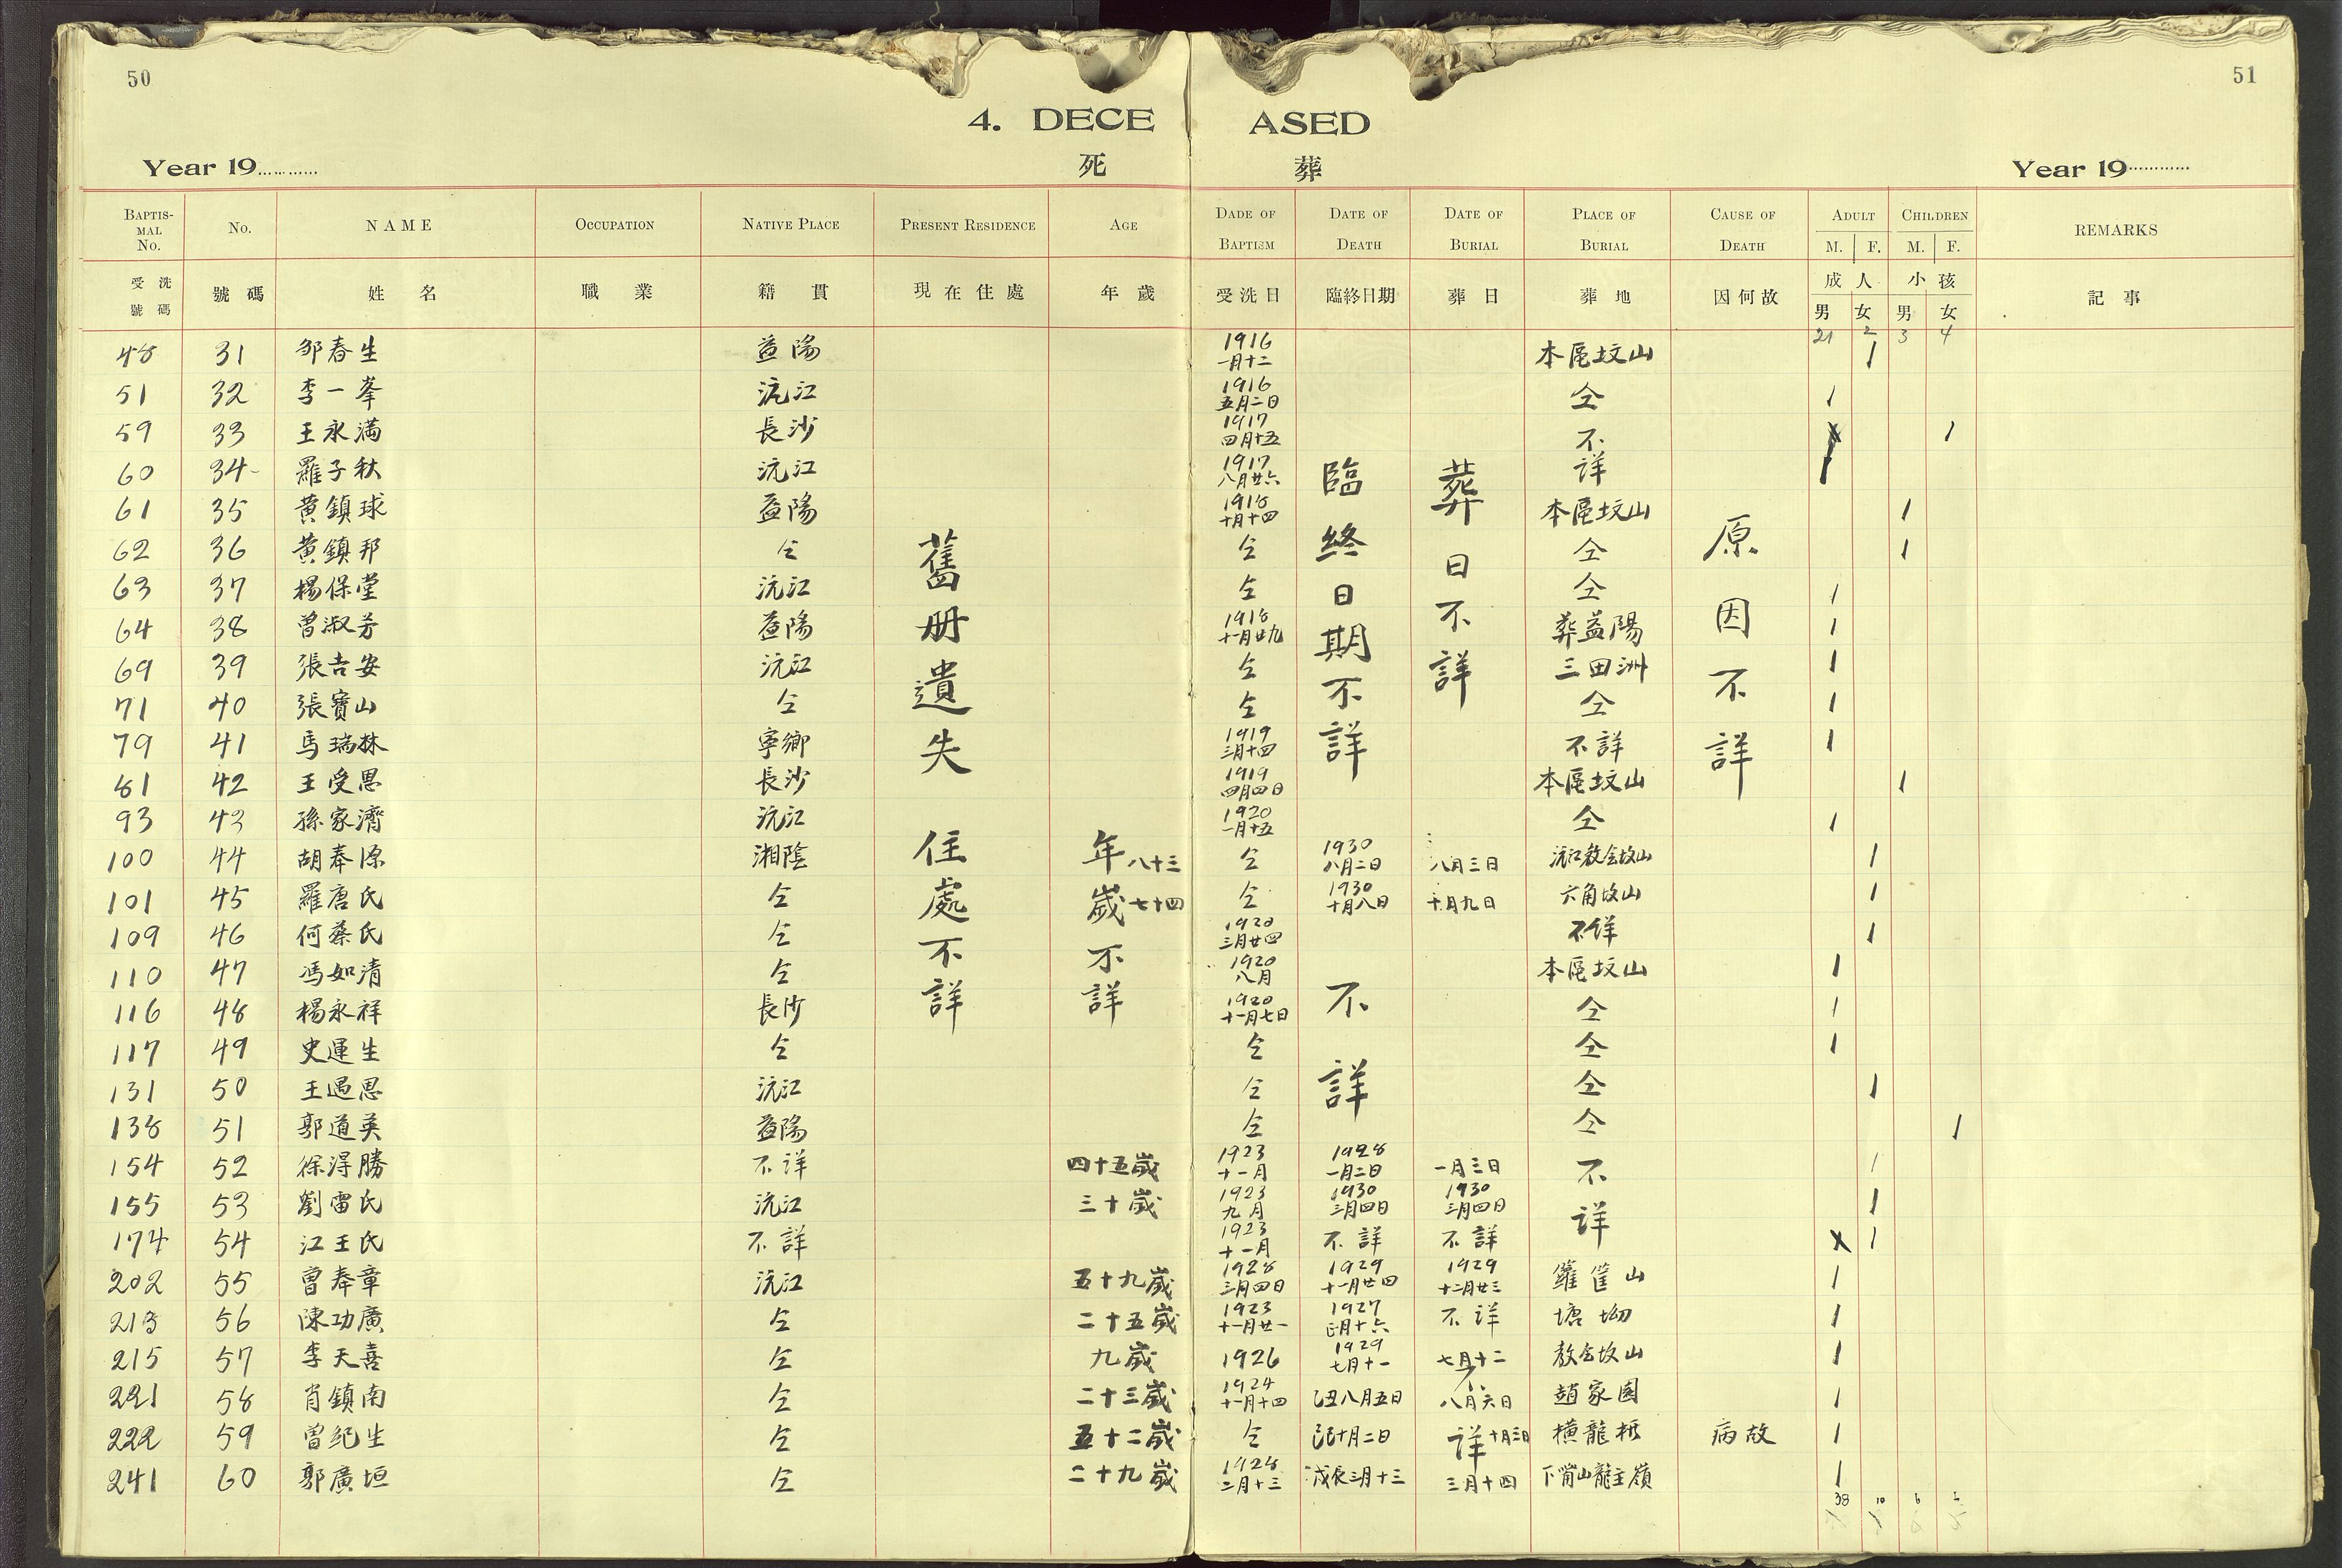 50
51
4. DECEASED
死 葬
Year 19............ Year 19............
BAPTISMAL No. No. NAME OCCUPATION NATIVE PLACE PRESENT RESIDENCE AGE DADE OF BAPTISM DATE OF DEATH DATE OF BURIAL PLACE OF BURIAL CAUSE OF DEATH ADULT M. F. CHILDREN M. F. REMARKS
受洗號碼 號碼 姓名 職業 籍貫 現在住處 年歲 受洗日 臨終日期 葬日 葬地 因何故 成人 男 女 小孩 男 女 記事
21 2 3 4
48 31 邹春生 益陽 1916 一月十二 本區坟山 1
51 32 李一峯 沅江 1916 五月二日 仝 1
59 33 王永滿 長沙 1917 四月十五 不 1
60 34 羅子秋 沅江 1917 八月廿六 詳 1
61 35 黄鎮球 益陽 1918 十月十四 本區坟山 1
62 36 黄鎮邦 仝 仝 仝 1
63 37 楊保堂 沅江 仝 仝 1
64 38 曾淑芳 益陽 1918 十一月廿九 葬益陽 1
69 39 張吉安 沅江 仝 三田洲 1
71 40 張寶山 仝 仝 仝 1
79 41 馬瑞林 寧鄉 1919 三月十四 不詳 1
81 42 王受恩 長沙 1919 四月四日 本區坟山 1
93 43 孫家濟 沅江 1920 一月十五 仝 1
舊册遺失 住處不詳
年歲不詳
臨終日期不詳
葬日不詳
原因不詳
100 44 胡奉源 湘陰 八十三 仝 1930 八月二日 八月三日 沅江教会坟山 1
101 45 羅唐氏 仝 七十四 仝 1930 十月八日 十月九日 六角坟山 1
109 46 何蔡氏 仝 1920 三月廿四 不详 1
110 47 馮如清 仝 1920 八月 本區坟山 1
116 48 楊永祥 長沙 1920 十一月七日 不 仝 1
117 49 史運生 仝 仝 仝 1
131 50 王遇恩 沅江 仝 詳 仝 1
138 51 郭道英 益陽 仝 仝 1
154 52 徐得勝 不詳 四十五歲 1923 十一月 1928 一月二日 一月三日 不 1
155 53 劉雷氏 沅江 三十歲 1923 九月 1930 三月四日 1930 三月四日 詳 1
174 54 江王氏 不詳 1923 十一月 不詳 不詳 X 1
202 55 曾奉章 沅江 五十九歲 1928 三月四日 1929 十一月廿四 1929 十二月廿三 山 1
213 56 陳功廣 仝 二十五歲 1923 十一月廿一 1927 正月十六 不詳 塘坳 1
215 57 李天喜 仝 九歲 1926 1929 七月十一 七月十二 教会坟山 1
221 58 肖鎮南 仝 二十三歲 1924 十一月十四 乙丑八月五日 八月六日 趙家園 1
222 59 曾紀生 仝 五十二歲 仝 己巳十月二日 詳 十月三日 橫龍桥 病故 1
241 60 郭廣垣 仝 二十九歲 1928 二月十三 戊辰三月十三 三月十四 1
38 10 6